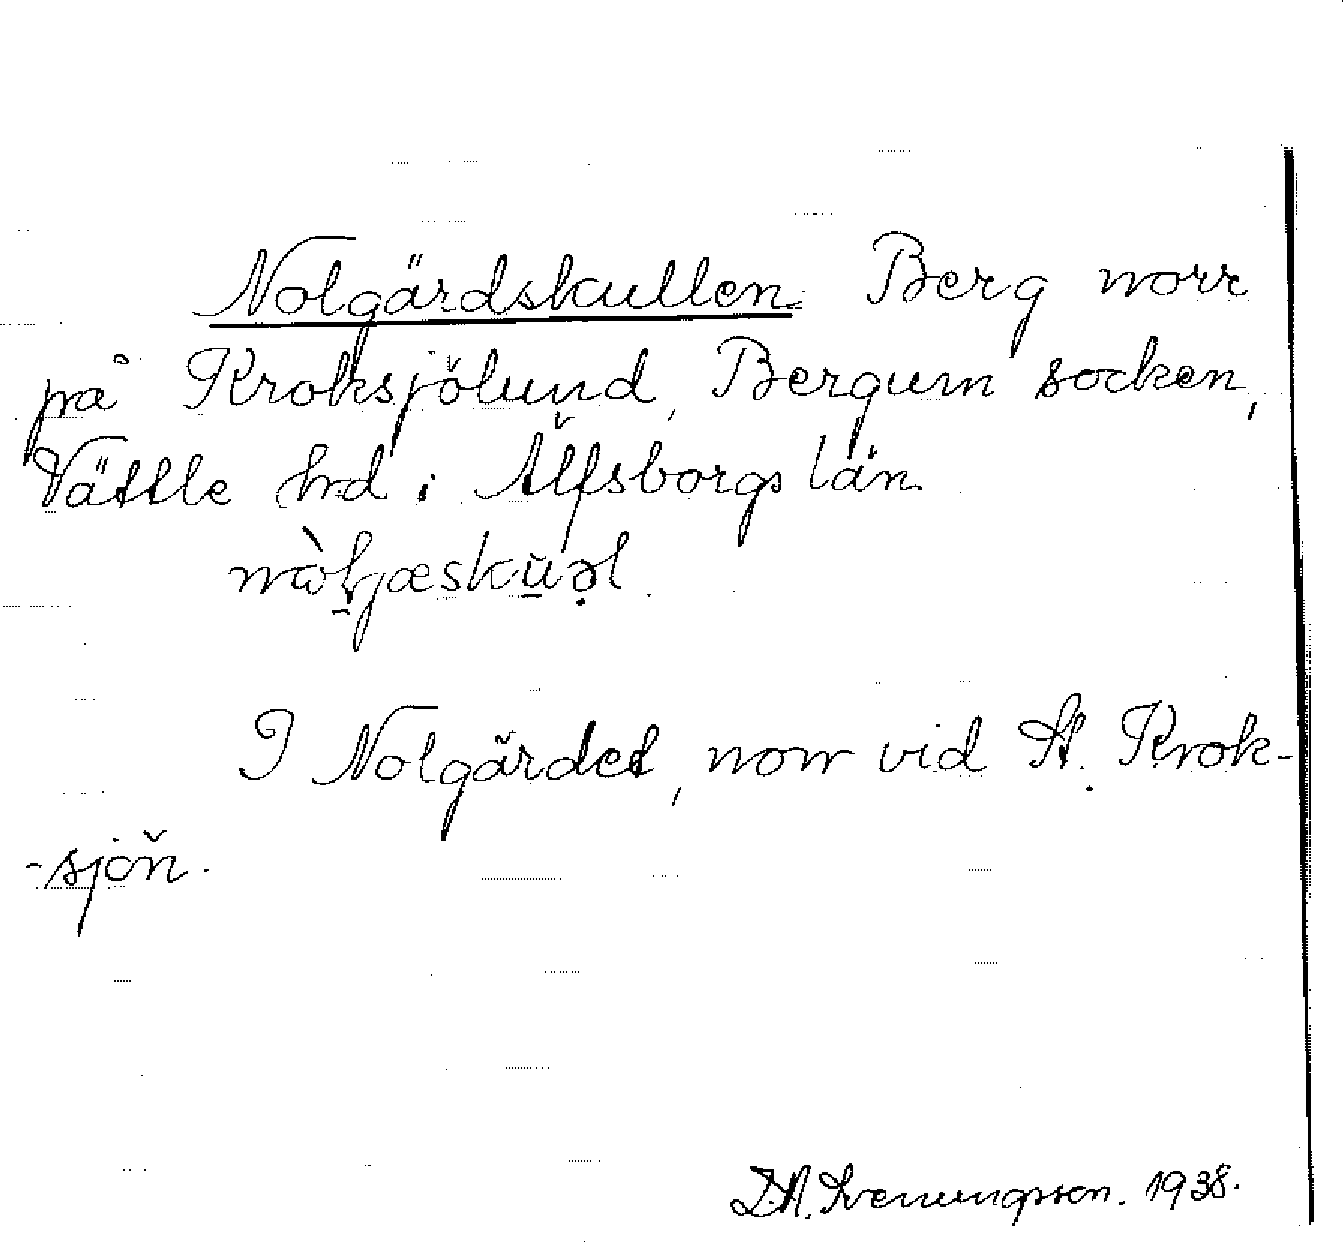 Nolgärdskullen. Berg norr
på Kroksjölund, Bergum socken,
Vättle hd i Älfsborgs län.
I Nolgärdet, norr vid St. Krok-
-sjön.
D.A. Svenungsson. 1938.